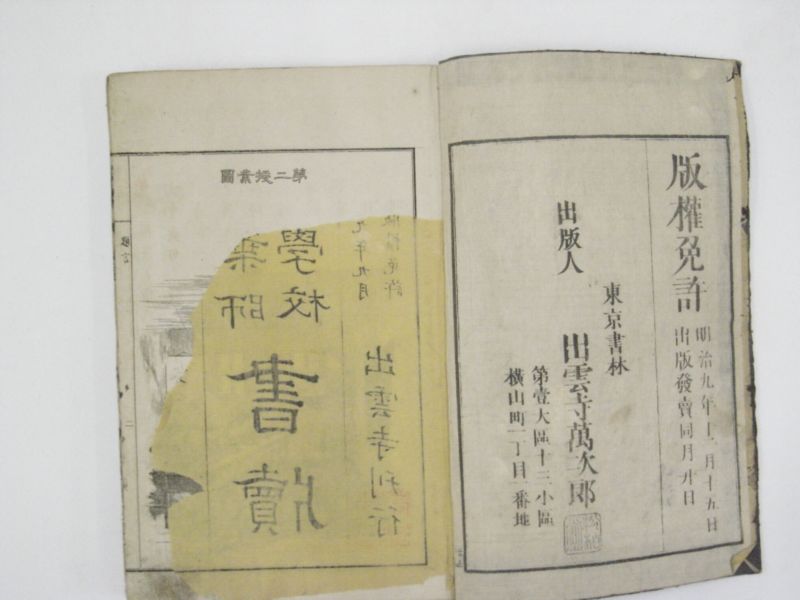 版權免許
明治九年十二月十五日
出版發賣同月廿日
東京書林
出版人 出雲寺萬次郎
第壹大區十三小區
橫山町一丁目一番地
第二授業圖
版權免許
九年九月
學校
師
書牘
出雲寺刊行
二